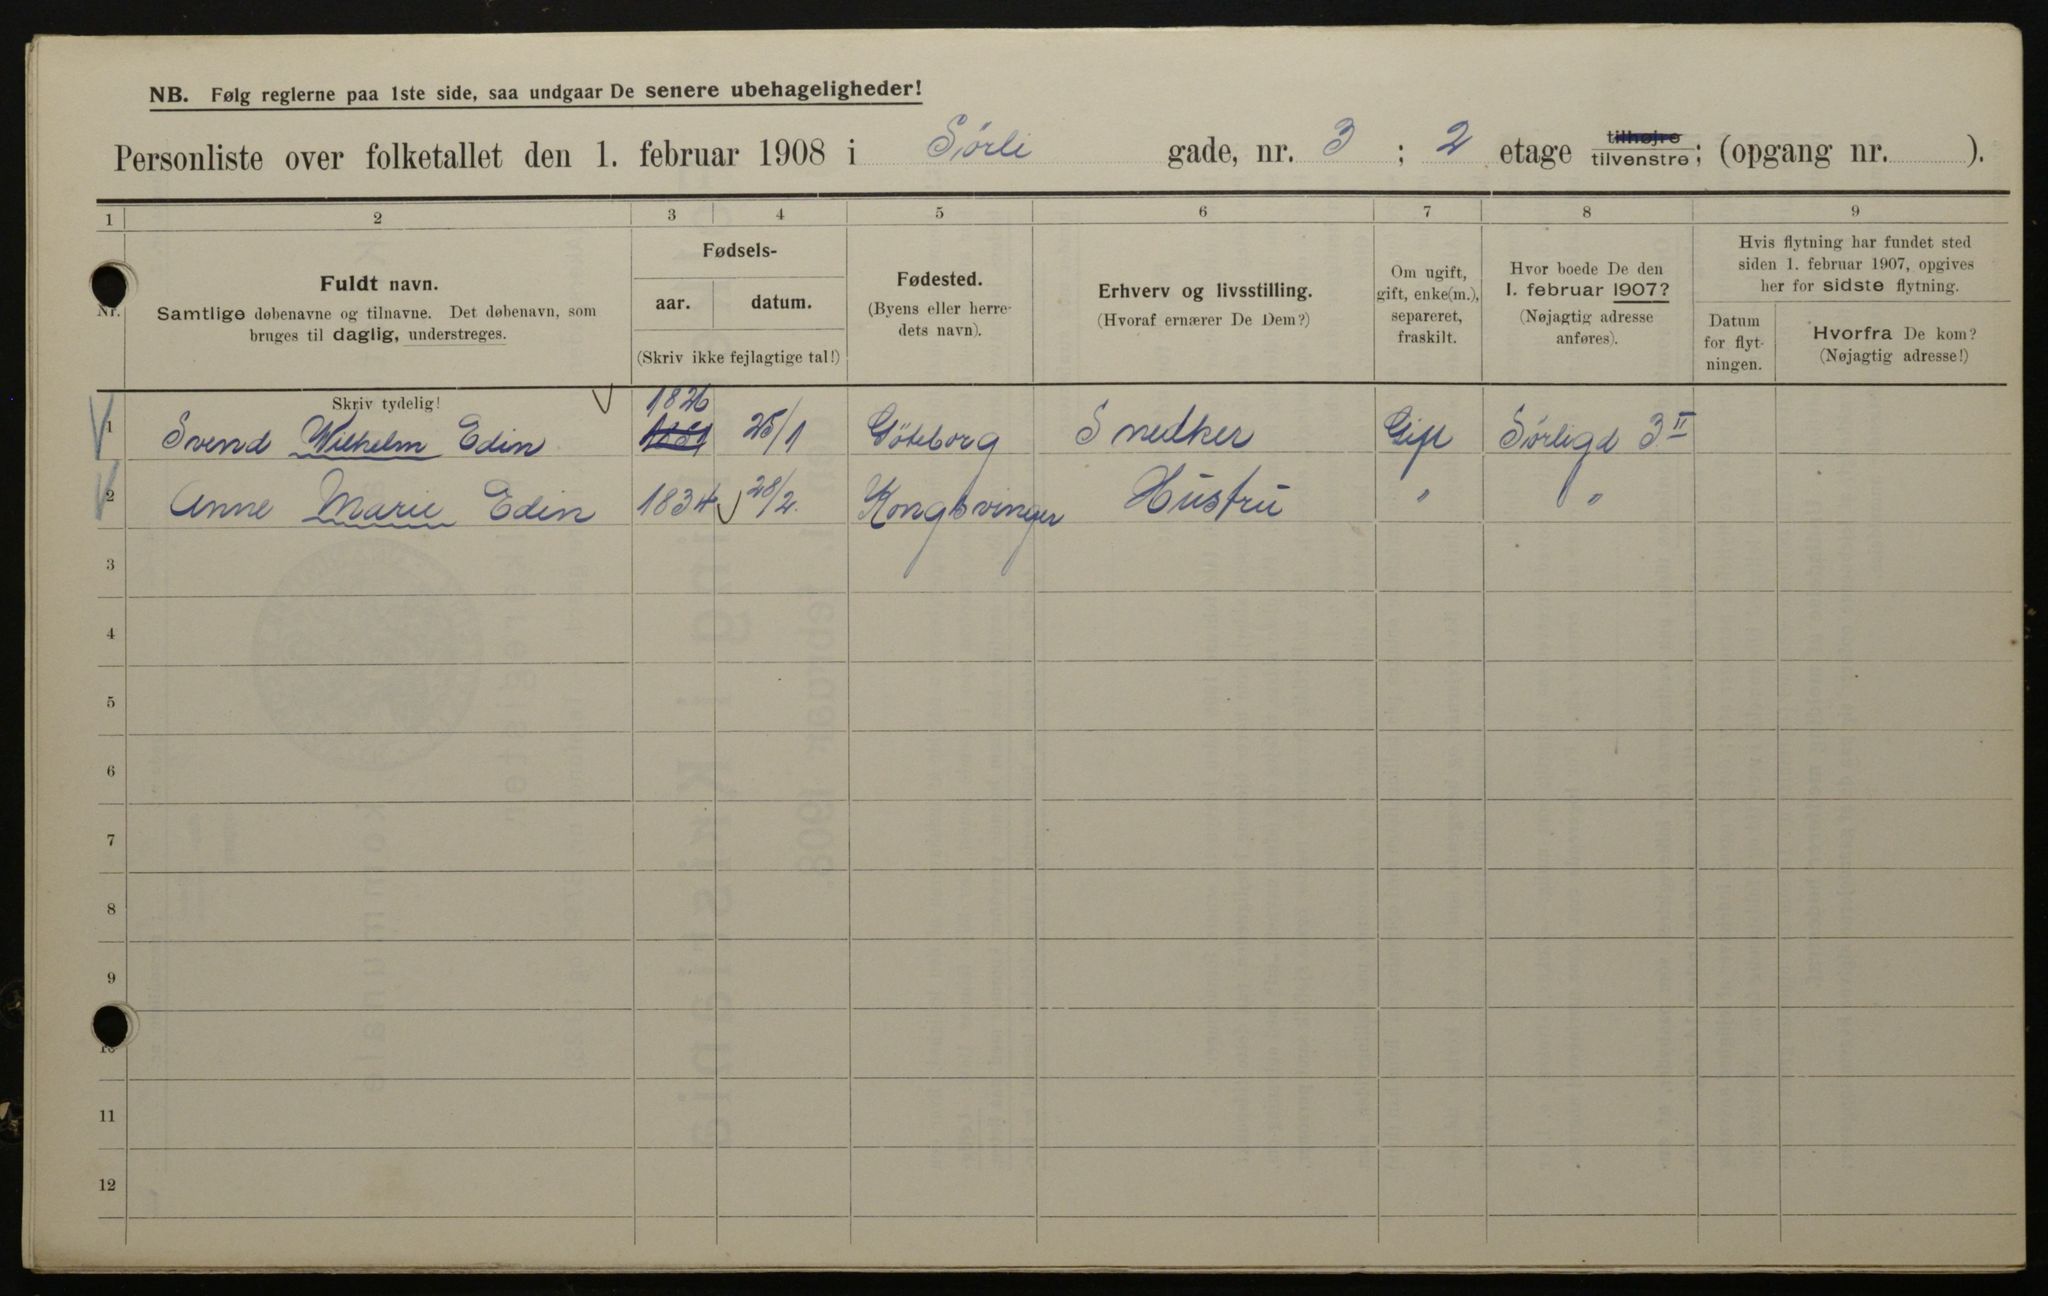 NB. Følg reglerne paa 1ste side, saa undgaar De senere ubehageligheder!
Personliste over folketallet den 1. februar 1908 i Sørli gade, nr. 3 ; 2 etage tilhøjre tilvenstre; (opgang nr. ).
1 2 3 4 5 6 7 8 9
Nr.
Fuldt navn.
Samtlige døbenavne og tilnavne. Det døbenavn, som
bruges til daglig, understreges.
Skriv tydelig!
Fødsels-
aar. datum.
(Skriv ikke fejlagtige tal!)
Fødested.
(Byens eller herre-
dets navn).
Erhverv og livsstilling.
(Hvoraf ernærer De Dem?)
Om ugift,
gift, enke(m.),
separeret,
fraskilt.
Hvor boede De den
1. februar 1907?
(Nøjagtig adresse
anføres).
Hvis flytning har fundet sted
siden 1. februar 1907, opgives
her for sidste flytning.
Datum
for flyt-
ningen.
Hvorfra De kom?
(Nøjagtig adresse!)
1826
1 Svend Wilhelm Edin 25/1 Göteborg Snedker Gift Sørligd 3 II
2 Anne Marie Edin 1834 28/2 Kongsvinger Hustru " "
3
4
5
6
7
8
9
10
11
12